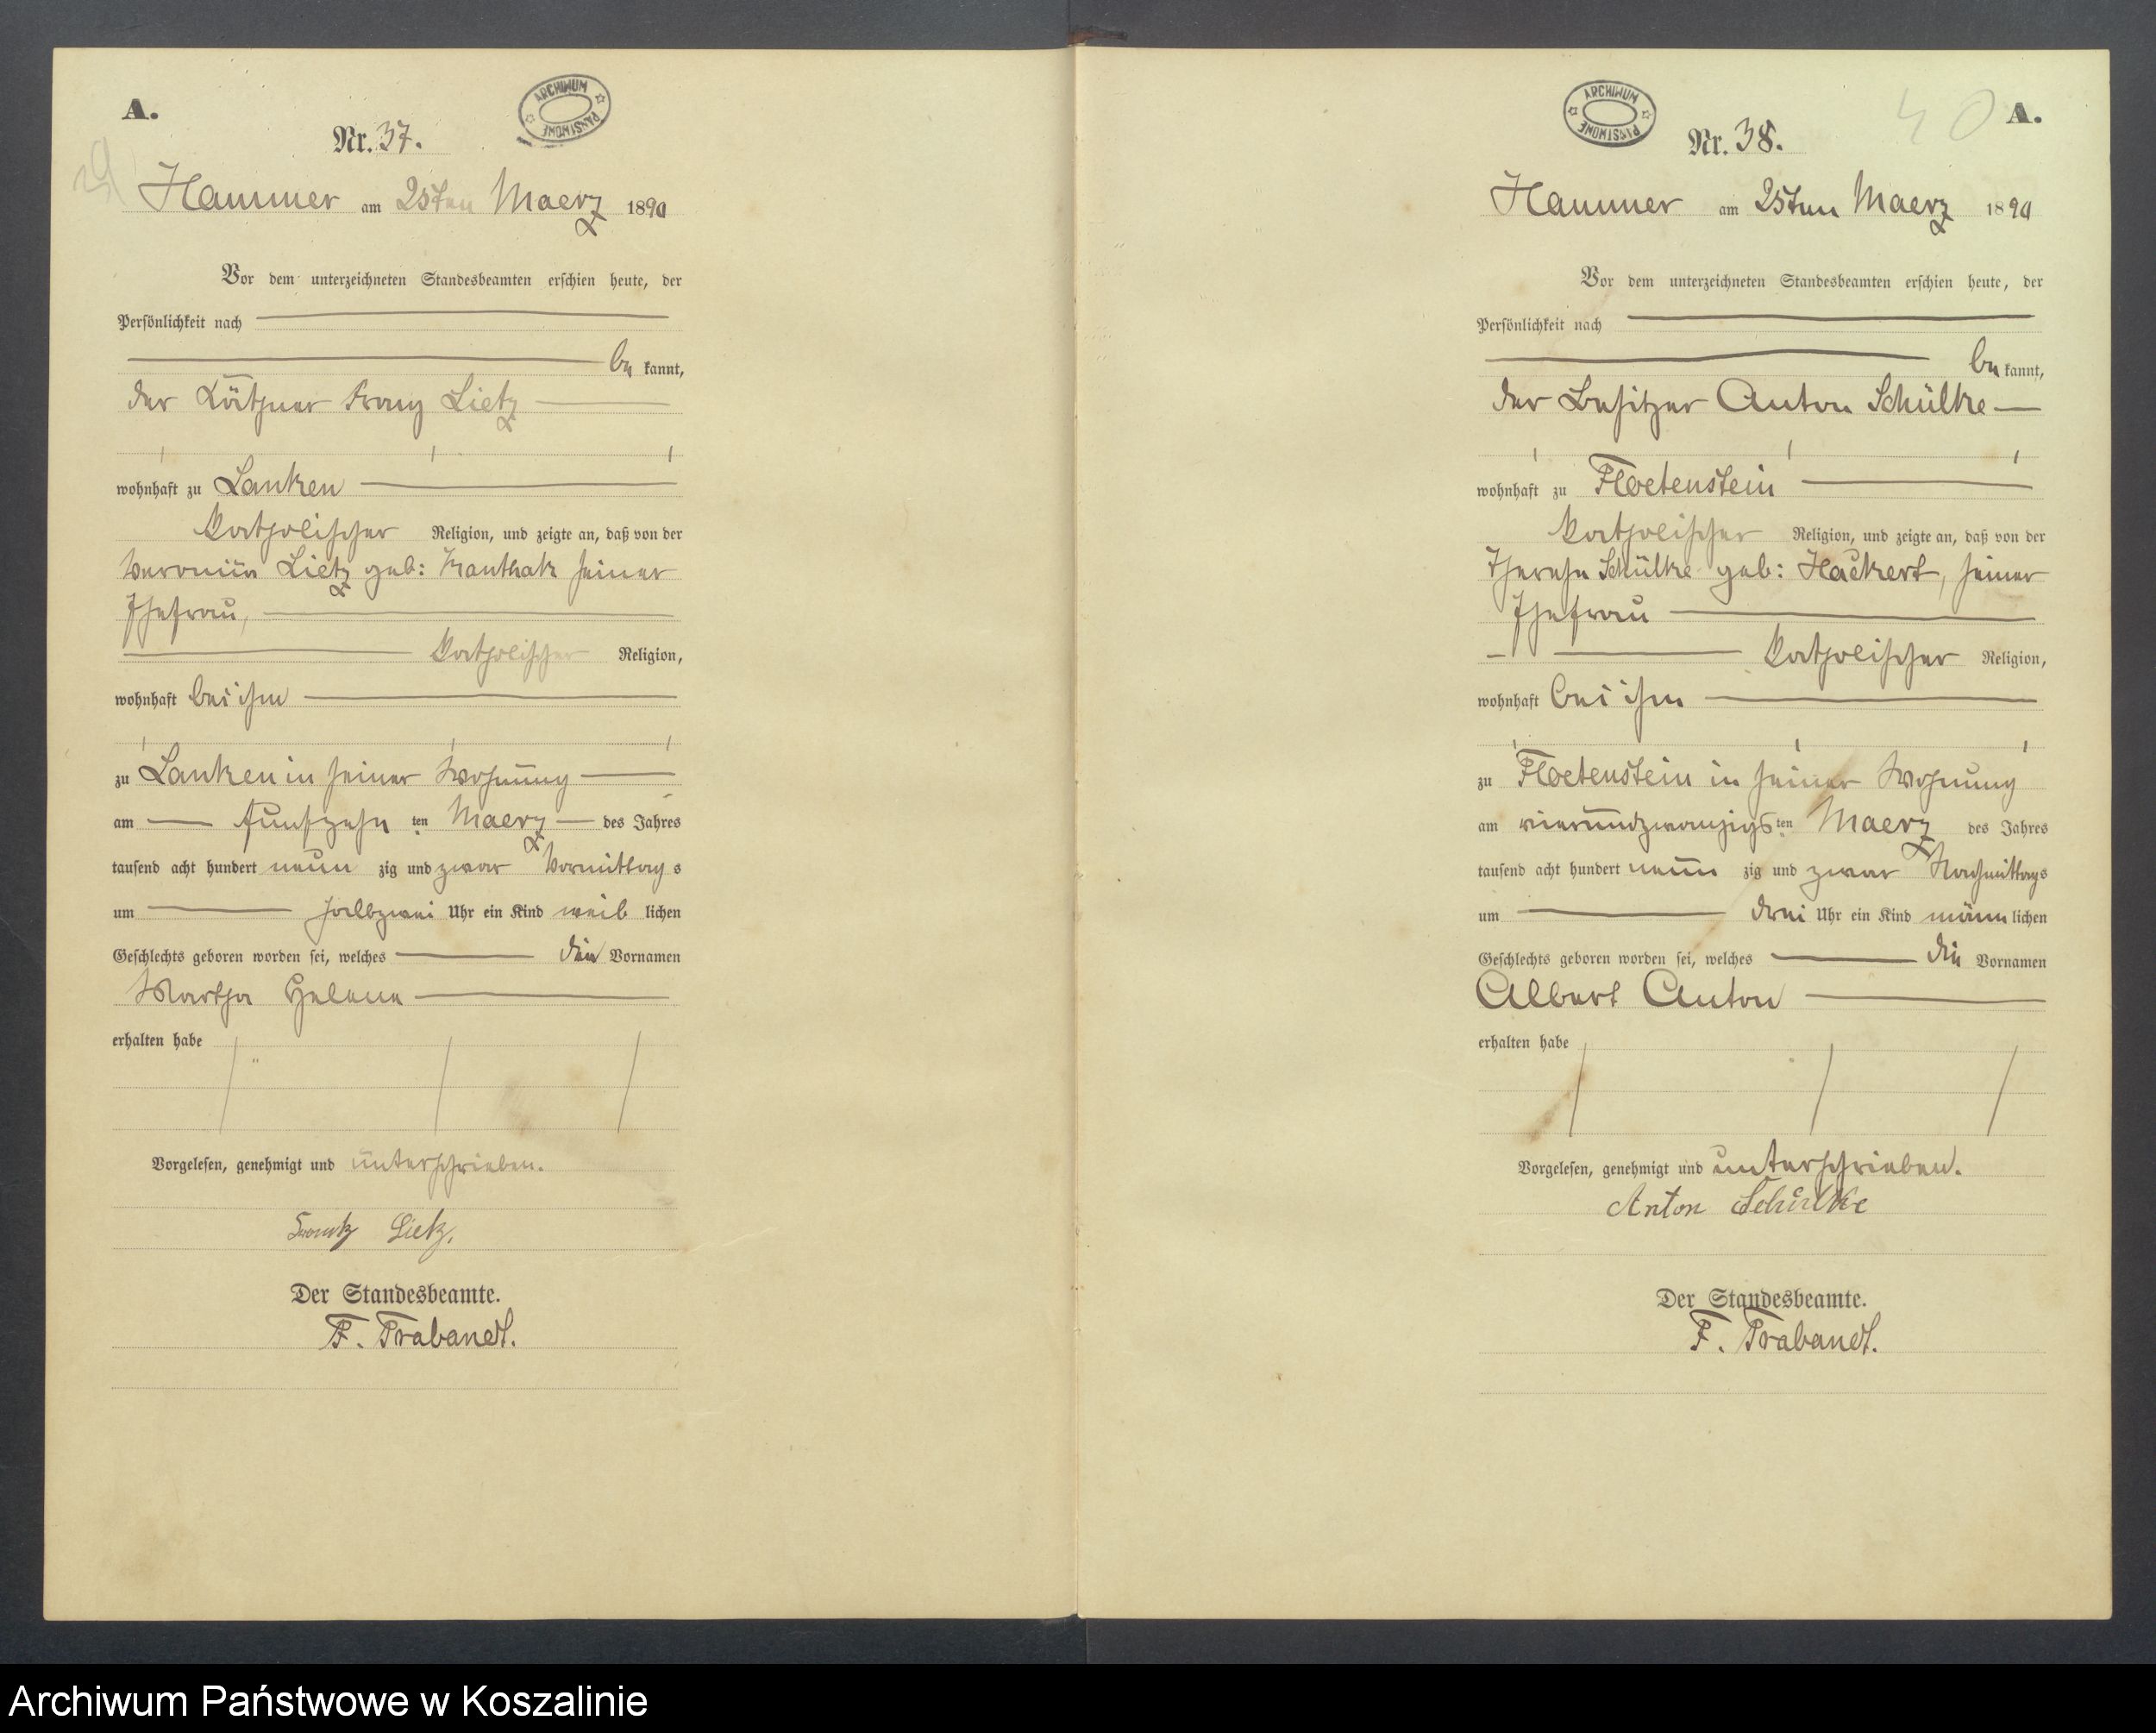 A.
ARCHIWUM PAŃSTWOWE
Nr. 37.
39
Hammer am 25ten Maerz 1890
Vor dem unterzeichneten Standesbeamten erschien heute, der
Persönlichkeit nach
be kannt,
der Käthner Franz Lietz
wohnhaft zu Lanken
katholischer Religion, und zeigte an, daß von der
Lietz geb: seiner
Ehefrau,
katholischer Religion,
wohnhaft bei ihm
zu Lanken in seiner Wohnung
am fünfzehn ten Maerz des Jahres
tausend acht hundert neun zig und zwar Vormittag s
um halbzwei Uhr ein Kind weib lichen
Geschlechts geboren worden sei, welches die Vornamen
Martha Helene
erhalten habe
Vorgelesen, genehmigt und unterschrieben.
Frantz Lietz.
Der Standesbeamte.
F. Trabandt.
ARCHIWUM PAŃSTWOWE
40
A.
Nr. 38.
Hammer am 25ten Maerz 1890
Vor dem unterzeichneten Standesbeamten erschien heute, der
Persönlichkeit nach
be kannt,
der Besitzer Anton Schülke
wohnhaft zu Floetenstein
katholischer Religion, und zeigte an, daß von der
Therese Schülke geb: Hackert, seiner
Ehefrau
katholischer Religion,
wohnhaft bei ihm
zu Floetenstein in seiner Wohnung
am vierundzwanzigs ten Maerz des Jahres
tausend acht hundert neun zig und zwar Nachmittags
um drei Uhr ein Kind männ lichen
Geschlechts geboren worden sei, welches die Vornamen
Albert Anton
erhalten habe
Vorgelesen, genehmigt und unterschrieben.
Anton Schülke
Der Standesbeamte.
F. Trabandt.
Archiwum Państwowe w Koszalinie